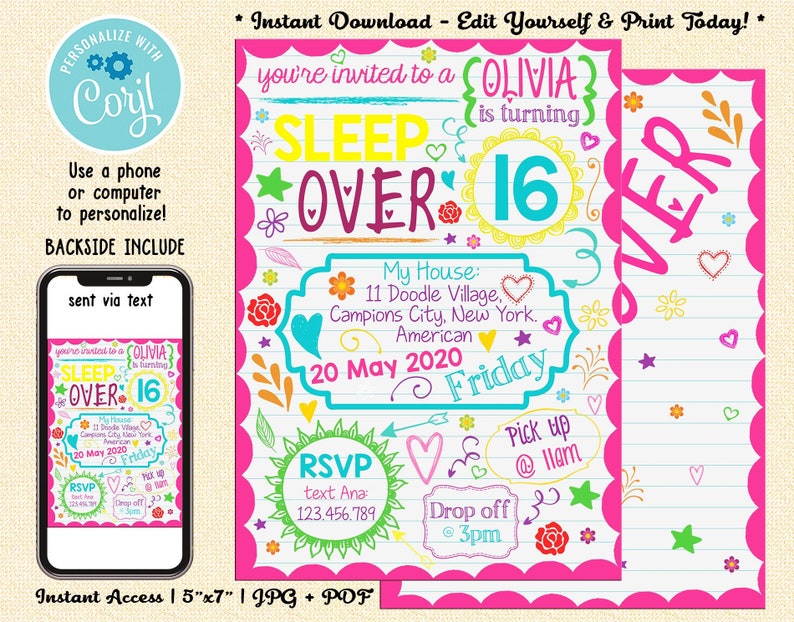 * Instant Download - Edit Yourself & Print Today! *
PERSONALIZE WITH
Corjl
Use a phone
or computer
to personalize!
BACKSIDE INCLUDE
sent via text
you're invited to a
OLIVIA
is turning
SLEEP
OVER
16
My House:
11 Doodle Village,
Campions City, New York.
American
20 May 2020
Friday
PICK UP
@ 11am
RSVP
text Ana:
123.456.789
you're invited to a
OLIVIA
is turning
SLEEP
OVER
16
My House:
11 Doodle Village,
Campions City, New York.
American
20 May 2020
Friday
PICK UP
@ 11am
RSVP
text Ana:
123.456.789
Drop off
@ 3pm
Drop off
@ 3pm
OVER
Instant Access | 5"x7" | JPG + PDF